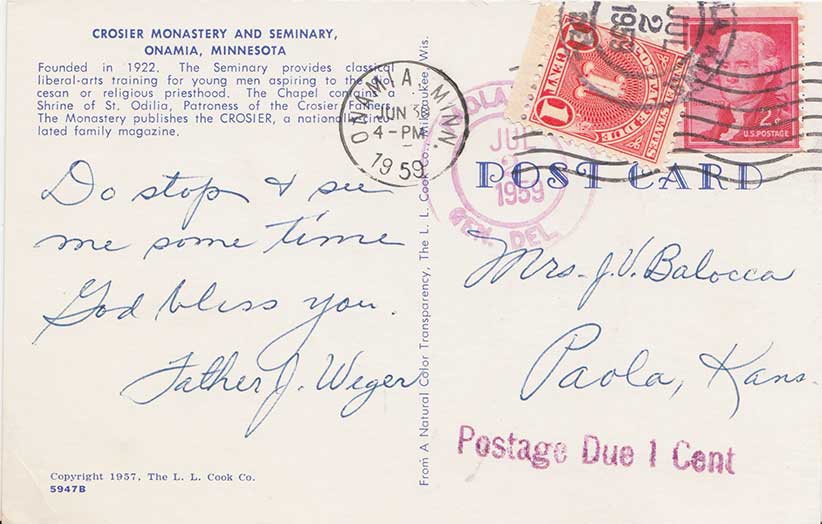 CROSIER MONASTERY AND SEMINARY,
ONAMIA, MINNESOTA
Founded in 1922. The Seminary provides classical
liberal-arts training for young men aspiring to the dio-
cesan or religious priesthood. The Chapel contains a
Shrine of St. Odilia, Patroness of the Crosier Fathers.
The Monastery publishes the CROSIER, a nationally circu-
lated family magazine.
ONAMIA, MINN.
JUN 30
4-PM
1959
Do stop & see
me some time
God bless you.
Father J. Weger
Copyright 1957, The L. L. Cook Co.
5947B
From A Natural Color Transparency, The L. L. Cook Co., Milwaukee, Wis.
JUL
2
1959
1 CENT 1
POSTAGE DUE
UNITED STATES
2¢
U.S. POSTAGE
JUL
2
1959
GEN. DEL.
POST CARD
Mrs. J. V. Balocca
Paola, Kans.
Postage Due 1 Cent